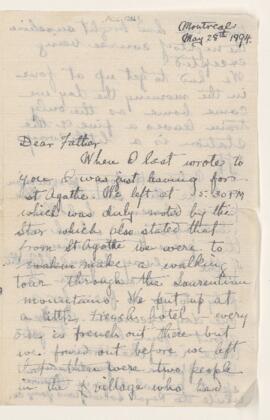 Montreal
May 28th 1894.
Dear Father
When I last wrote to
you I was just leaving for
St Agathe. We left at 5:30 PM
which was duly noted by the
Star which also stated that
from St Agathe we were to
make a walking
tour through the Laurentian
mountains. We put up at
a little French hotel - every
one is french out there but
we found out before we left
there were two people
in the village who had